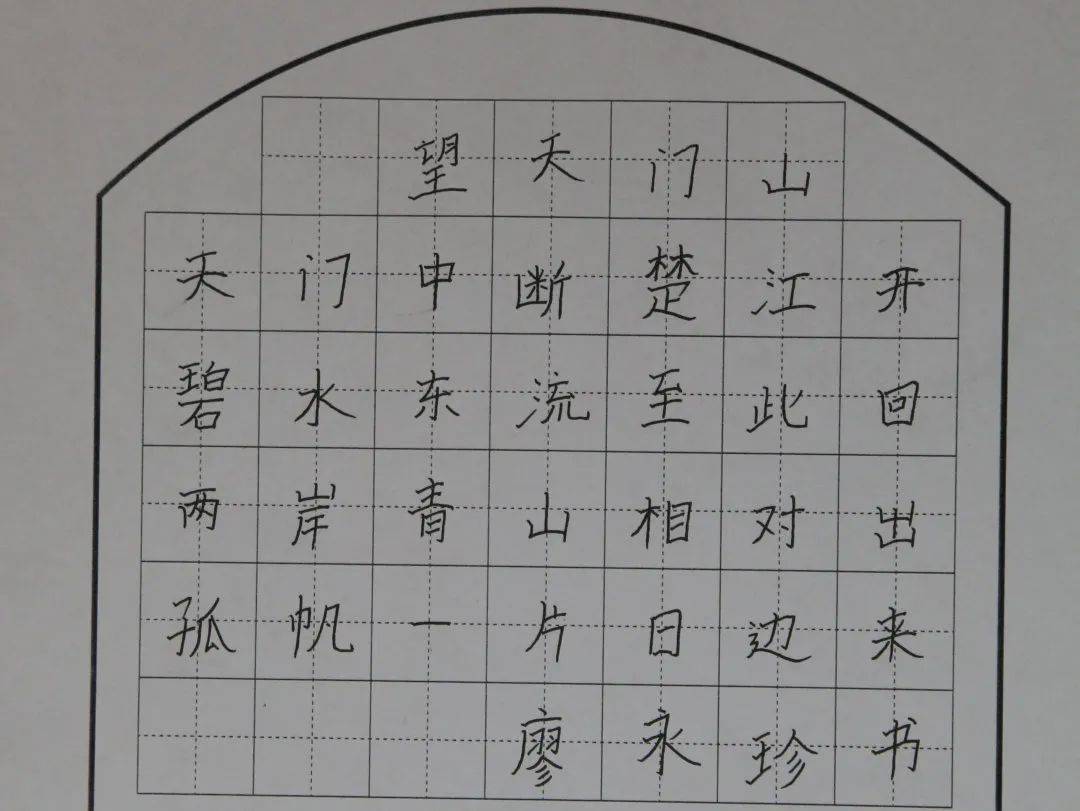 望天门山
天门中断楚江开
碧水东流至此回
两岸青山相对出
孤帆一片日边来
廖永珍书